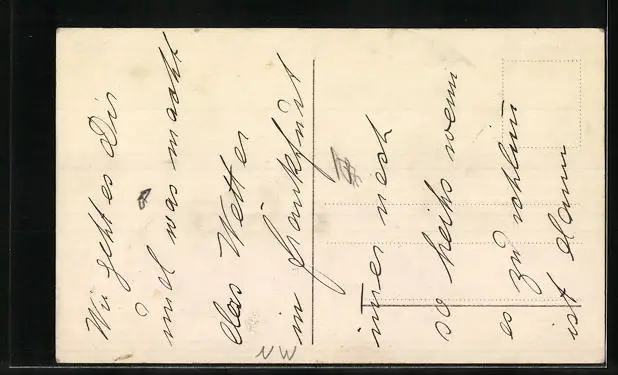 Wie geht es Dir
und was macht
das Wetter
in Frankfurt
imer noch
so heihs wenn
es zu schlim
ist dann
NW